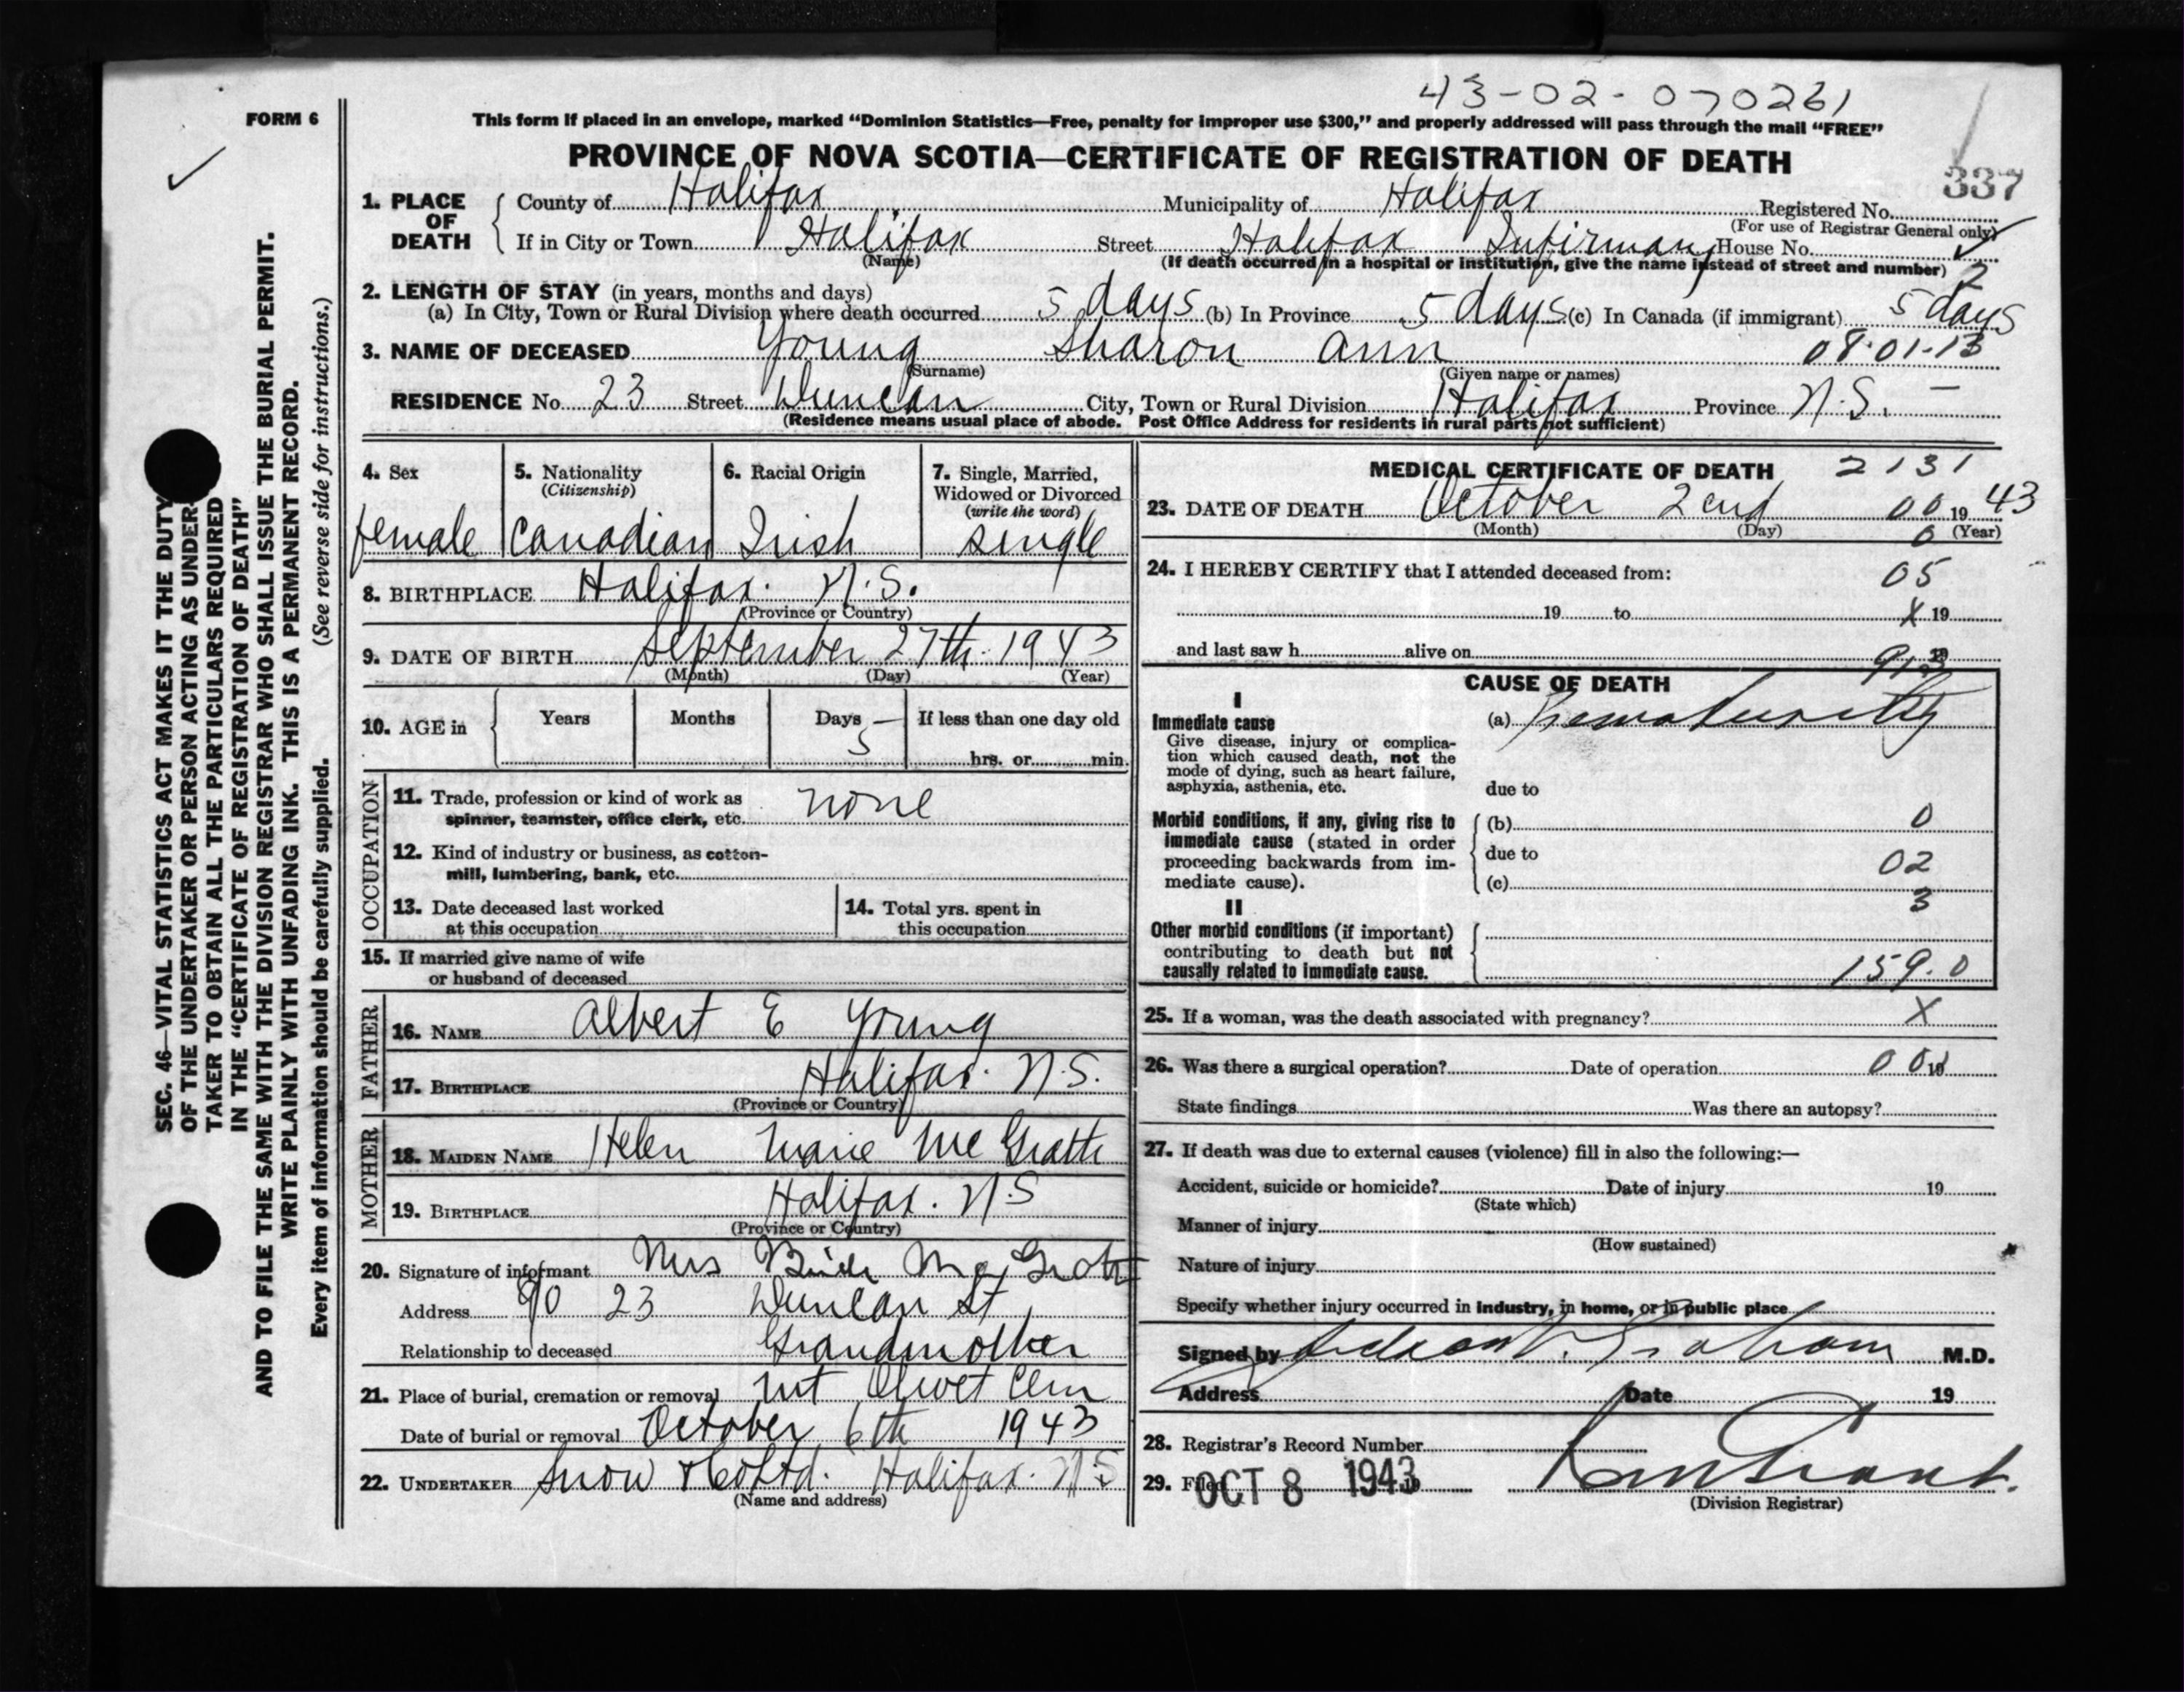 43-02-070261
FORM 6
This form if placed in an envelope, marked "Dominion Statistics—Free, penalty for improper use $300," and properly addressed will pass through the mail "FREE"
PROVINCE OF NOVA SCOTIA—CERTIFICATE OF REGISTRATION OF DEATH
337
1. PLACE OF DEATH
County of Halifax Municipality of Halifax Registered No.
(For use of Registrar General only)
If in City or Town Halifax Street Halifax Infirmary House No.
(Name) (If death occurred in a hospital or institution, give the name instead of street and number) 2
2. LENGTH OF STAY (in years, months and days)
(a) In City, Town or Rural Division where death occurred 5 days (b) In Province 5 days (c) In Canada (if immigrant) 5 days
3. NAME OF DECEASED Young Sharon Ann 08-01-13
(Surname) (Given name or names)
RESIDENCE No. 23 Street Duncan City, Town or Rural Division Halifax Province N.S. —
(Residence means usual place of abode. Post Office Address for residents in rural parts not sufficient)
4. Sex
female
5. Nationality
(Citizenship)
Canadian
6. Racial Origin
Irish
7. Single, Married,
Widowed or Divorced
(write the word)
single
8. BIRTHPLACE Halifax. N.S.
(Province or Country)
9. DATE OF BIRTH September 27th. 1943
(Month) (Day) (Year)
10. AGE in
Years Months Days — If less than one day old
5
hrs. or min.
OCCUPATION
11. Trade, profession or kind of work as
spinner, teamster, office clerk, etc. none
12. Kind of industry or business, as cotton-
mill, lumbering, bank, etc.
13. Date deceased last worked
at this occupation
14. Total yrs. spent in
this occupation
15. If married give name of wife
or husband of deceased
FATHER
16. NAME Albert E Young
17. BIRTHPLACE Halifax. N.S.
(Province or Country)
MOTHER
18. MAIDEN NAME Helen Marie McGrath
19. BIRTHPLACE Halifax. N.S
(Province or Country)
20. Signature of informant Mrs McGrath
Address 23 Duncan St,
Relationship to deceased Grandmother
21. Place of burial, cremation or removal Mt Olivet Cem
Date of burial or removal October 6th 1943
22. UNDERTAKER Snow & Co Ltd. Halifax. N.S
(Name and address)
MEDICAL CERTIFICATE OF DEATH 2131
23. DATE OF DEATH October 2cnd 00 1943
(Month) (Day) 0 (Year)
24. I HEREBY CERTIFY that I attended deceased from: 05
19 to X 19
and last saw h alive on 19
CAUSE OF DEATH
I
Immediate cause
Give disease, injury or complica-
tion which caused death, not the
mode of dying, such as heart failure,
asphyxia, asthenia, etc.
(a) Prematurity
due to
Morbid conditions, if any, giving rise to
immediate cause (stated in order
proceeding backwards from im-
mediate cause).
(b) 0
due to 02
(c)
3
II
Other morbid conditions (if important)
contributing to death but not
causally related to immediate cause.
159.0
25. If a woman, was the death associated with pregnancy? X
26. Was there a surgical operation? Date of operation 0 0 19
State findings Was there an autopsy?
27. If death was due to external causes (violence) fill in also the following:—
Accident, suicide or homicide? Date of injury 19
(State which)
Manner of injury
(How sustained)
Nature of injury
Specify whether injury occurred in industry, in home, or in public place
Signed by Graham M.D.
Address Date 19
28. Registrar's Record Number
29. Filed OCT 8 1943
(Division Registrar)
SEC. 46—VITAL STATISTICS ACT MAKES IT THE DUTY
OF THE UNDERTAKER OR PERSON ACTING AS UNDER-
TAKER TO OBTAIN ALL THE PARTICULARS REQUIRED
IN THE "CERTIFICATE OF REGISTRATION OF DEATH"
AND TO FILE THE SAME WITH THE DIVISION REGISTRAR WHO SHALL ISSUE THE BURIAL PERMIT.
WRITE PLAINLY WITH UNFADING INK. THIS IS A PERMANENT RECORD.
Every item of information should be carefully supplied. (See reverse side for instructions.)